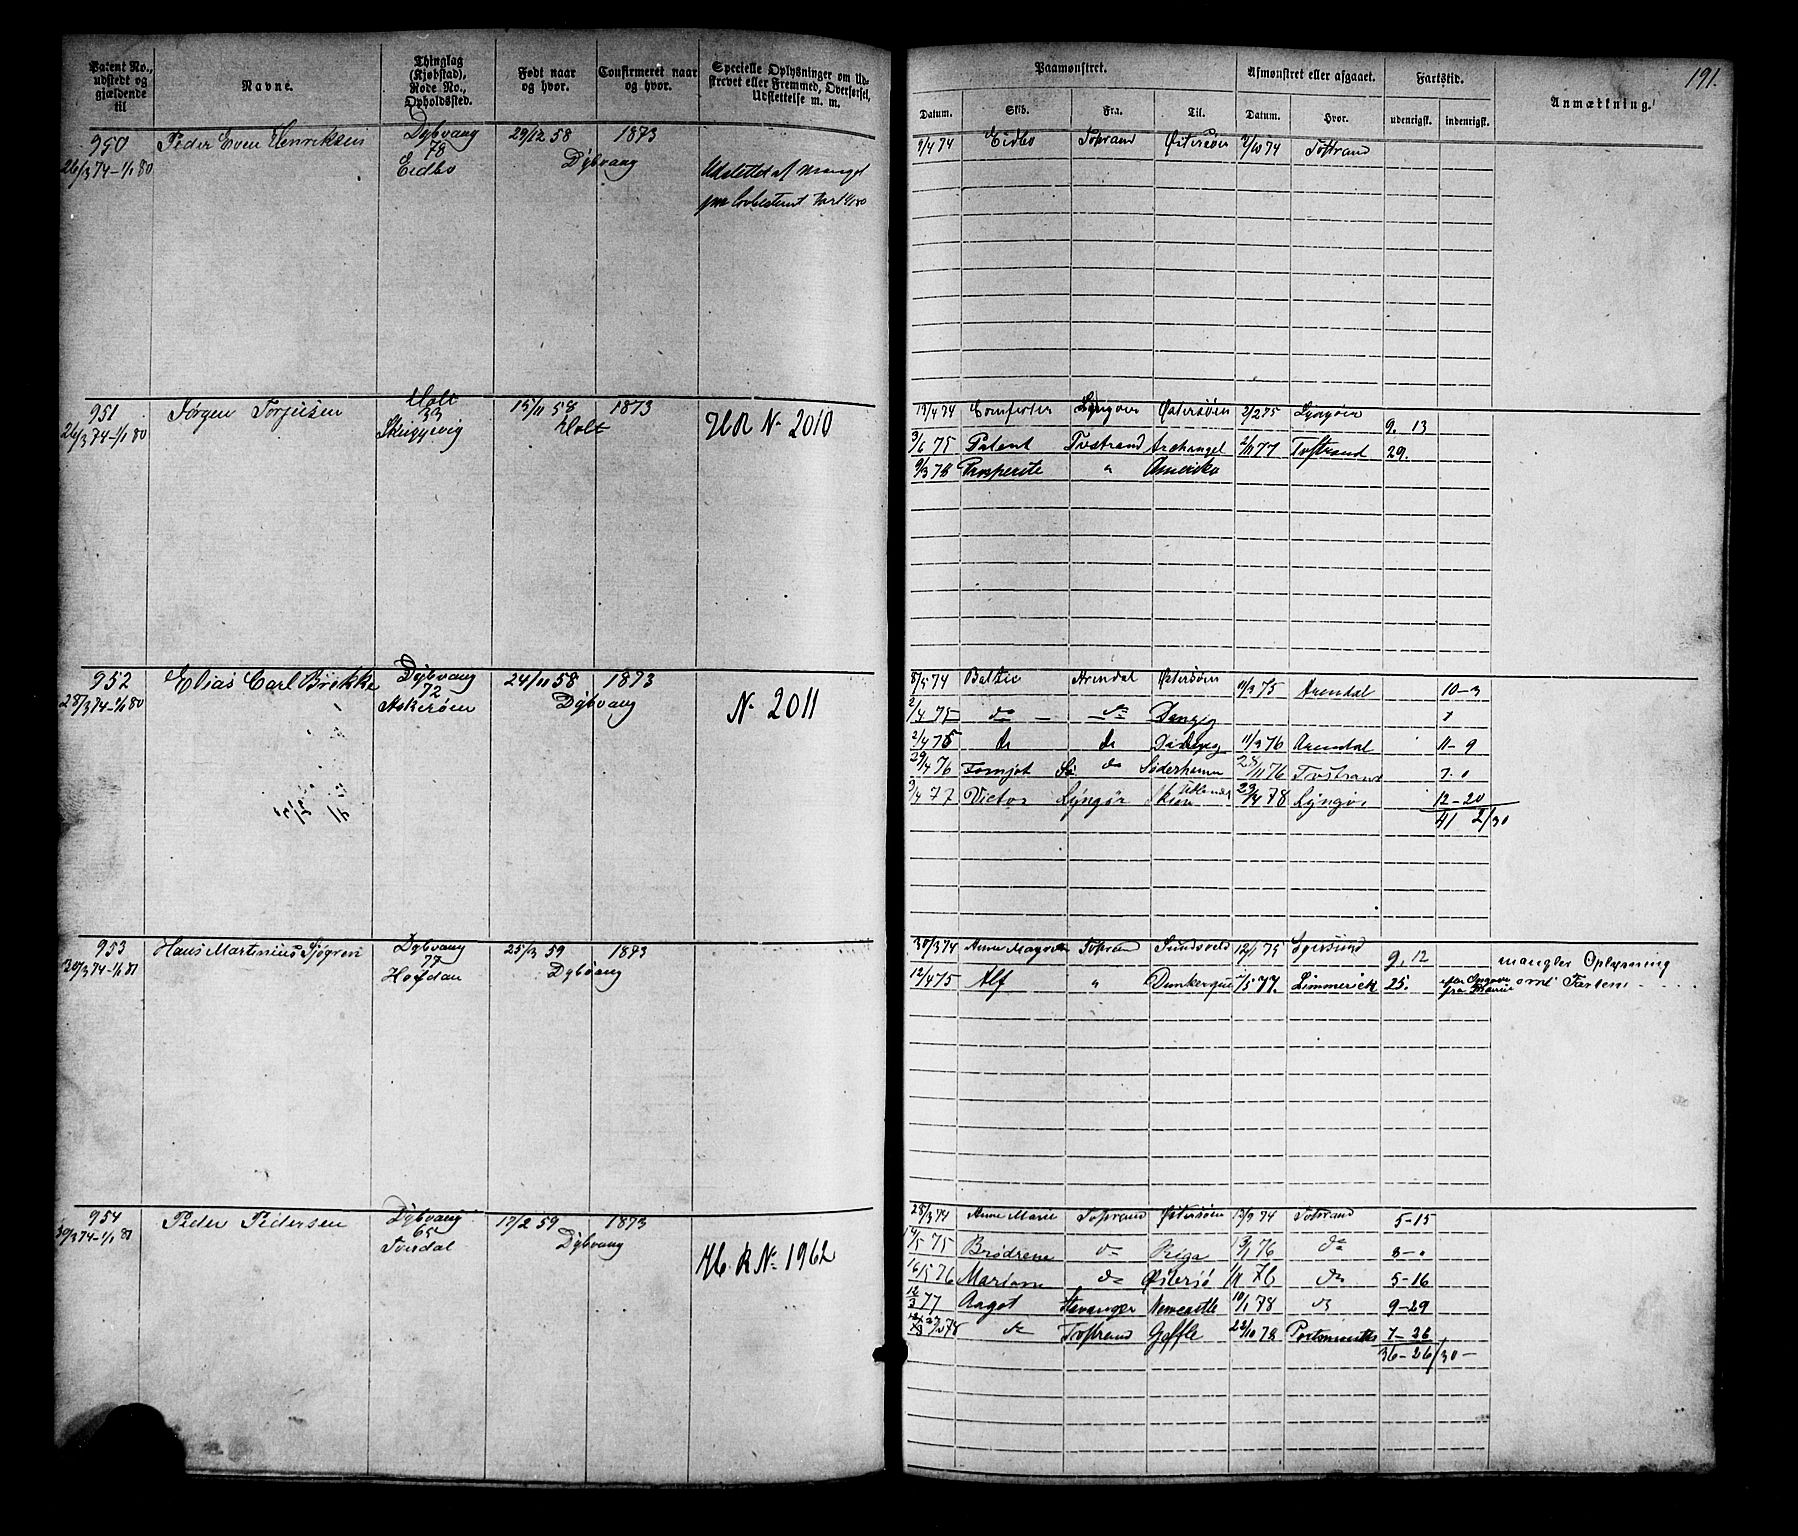 191.
Patent No., udstedt og gjældende til
Navne.
Thinglag (Kjøbstad), Rode No., Opholdssted.
Født naar og hvor.
Confirmeret naar og hvor.
Specielle Oplysninger om Udskrevet eller Fremmed, Overførsel, Udslettelse m. m.
Paamønstret.
Afmønstret eller afgaaet.
Fartstid.
Anmærkning.
Datum. Skib. Fra. Til. Datum. Hvor. udenrigsk. indenrigsk.
950 Peder Even Henriksen Dybvang 29/12 58 1873
26/3 74-1/1 80 78 Dybvang
Eidbo
Udslettet af Mangel
9/4 74 Eidbo Tvstrand Østersøen 2/10 74 Tvstrand
951 Jørgen Torjusen Holt 15/11 58 1873
26/3 74-1/1 80 33 Holt
Skuggevig
HR No 2010
13/4 74 Lyngøer Østersøen 2/2 75 Lyngøer 9. 13
3/6 75 Patent Tvstrand Archangel 2/11 77 Tvstrand 29.
9/3 78 Prosperite " Amerika
952 Elias Carl Brekke Dybvang 24/11 58 1873
28/3 74-1/1 80 72 Dybvang
Askerøen
No 2011
8/5 74 Baltic Arendal Østersøen 11/2 75 Arendal 10-3
2/4 75 do do Danzig
2/4 75 do do 11/3 76 Arendal 11-9
29/4 76 do Söderhamn 28/11 76 Tvstrand 7.0
3/4 77 Victor Lyngør Skien 29/4 78 Lyngør 12-20
41 2/30
953 Hans Martinius Sjøgren Dybvang 25/3 59 1873
30/3 74-1/1 81 77 Dybvang
Hofdan
30/3 74 Tvstrand Sundsvald 12/1 75 9. 12
12/4 75 Alf " Dunkerque 1/5 77. Limmerick 25.
mangler Oplysning
om Farten
954 Peder Pedersen Dybvang 17/2 59 1873
30/3 74-1/1 81 65 Dybvang
Tverdal
Hb. R No 1962
28/3 74 Anne Marie Tvstrand Østersøen 13/9 74 Tvstrand 5-15
14/5 75 Brødrene do Riga 3/1 76 do 8-0
16/5 76 Mariane do Østersø 1/11 76 do 5-16
12/3 77 Aagot Stavanger Newcastle 10/1 78 do 9-29
do Tvstrand Geffle 22/10 78 7-26
36-26/30